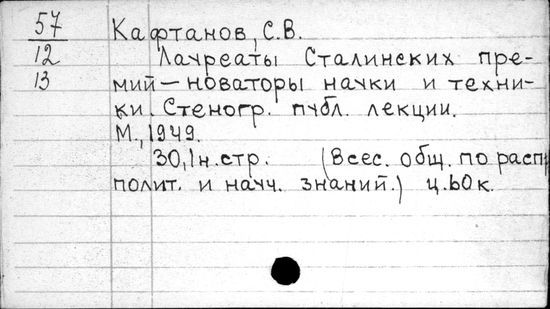 57
12
13
Кафтанов, С.В.
Лауреаты Сталинских пре-
мий — новаторы науки и техни-
ки. Стеногр. публ. лекции.
М., 1949.
30, 1 н. стр. (Всес. общ. по расп
полит. и науч. знаний.) ц. 60 к.